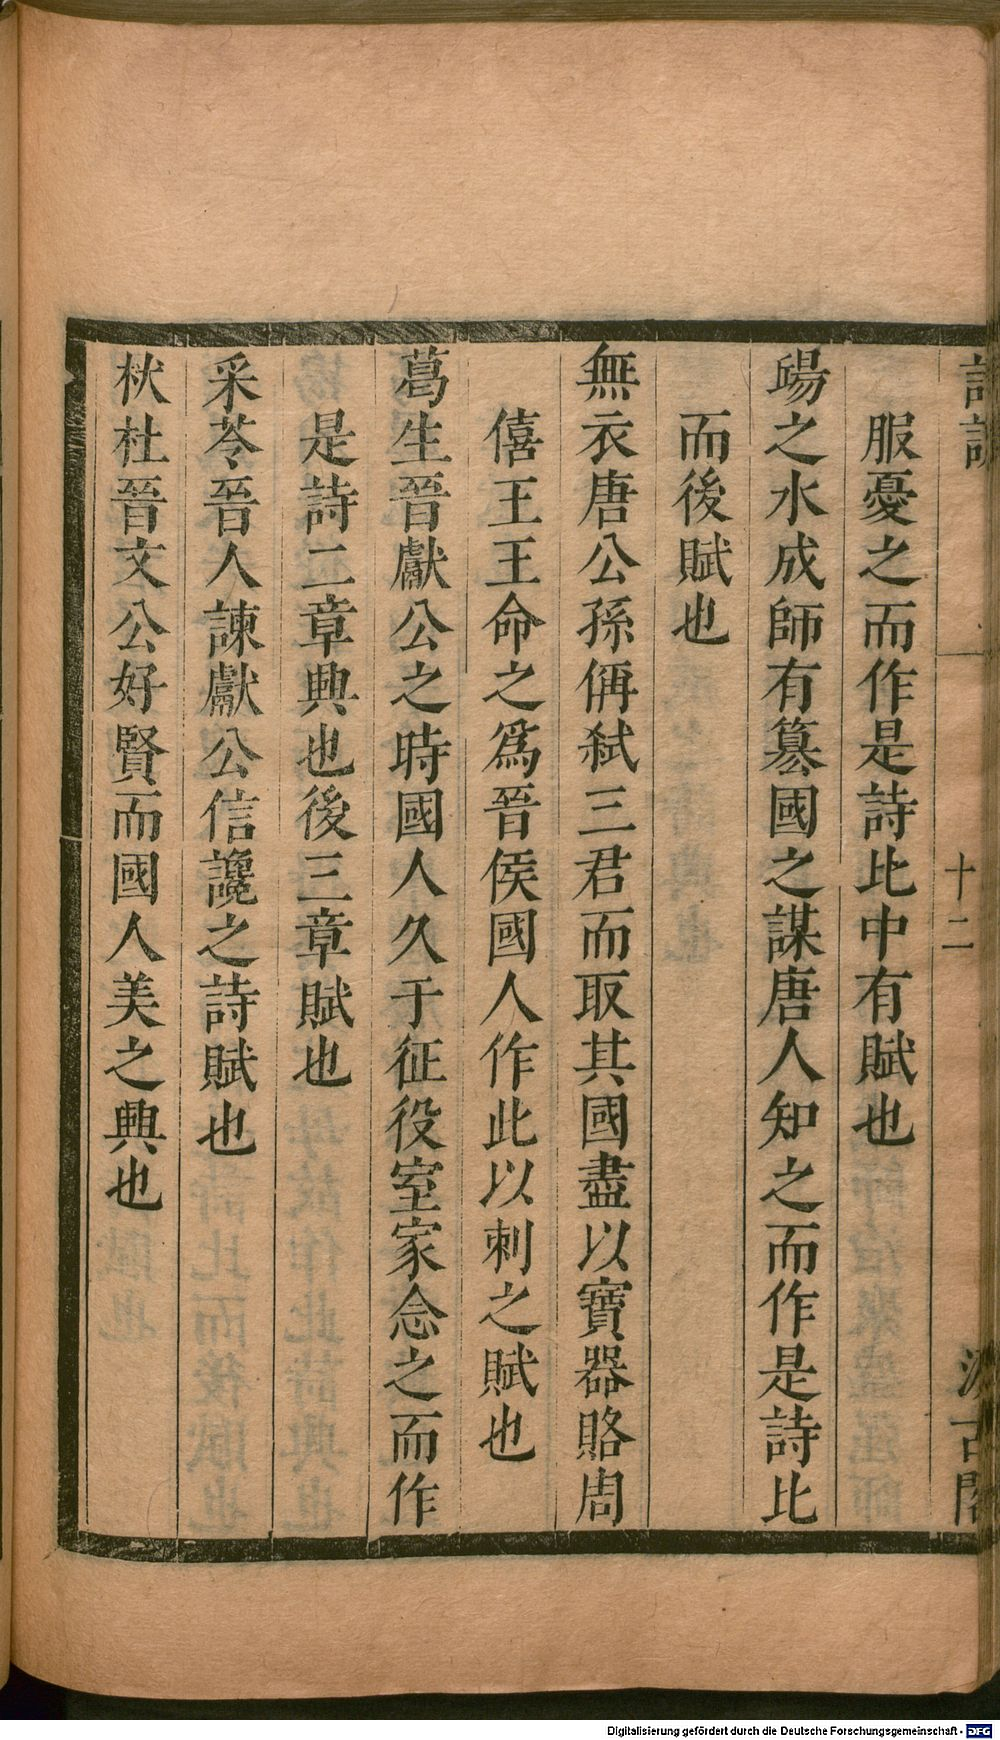 詩說
十二
汲古閣
服憂之而作是詩比中有賦也
昜之水成師有篡國之謀唐人知之而作是詩比
而後賦也
無衣唐公孫偁弑三君而取其國盡以寶器賂周
僖王王命之爲晉侯國人作此以刺之賦也
葛生晉獻公之時國人久于征役室家念之而作
是詩二章興也後三章賦也
采苓晉人諫獻公信讒之詩賦也
杕杜晉文公好賢而國人美之興也
Digitalisierung gefördert durch die Deutsche Forschungsgemeinschaft - DFG